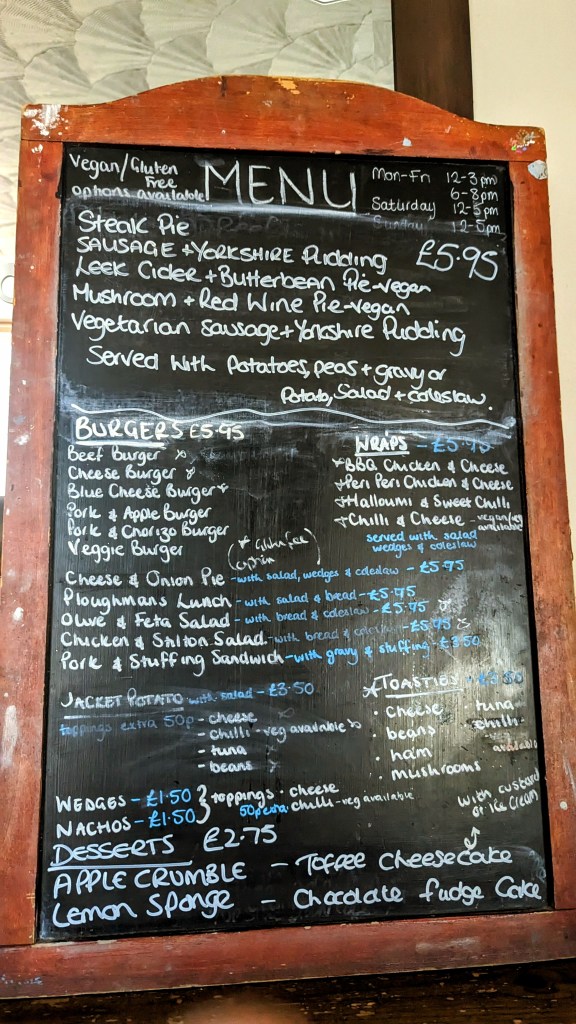 Vegan/Gluten
Free
options available
MENU
Mon-Fri 12-3pm
6-8pm
Saturday 12-5pm
Sunday 12-5pm
Steak Pie
SAUSAGE + YORKSHIRE Pudding £5.95
Leek Cider + Butterbean Pie-vegan
Mushroom + Red Wine Pie-vegan
Vegetarian Sausage + Yorkshire Pudding
Served With Potatoes, peas + gravy or
Potato, Salad + coleslaw.
BURGERS £5.95
Beef Burger
Cheese Burger
Blue Cheese Burger
Pork & Apple Burger
Pork & Chorizo Burger
Veggie Burger
(* Gluten free
WRAPS - £5.75
*BBQ Chicken & Cheese
*Peri Peri Chicken & Cheese
*Halloumi & Sweet Chilli
*Chilli & Cheese - vegan/veg
available
served with salad
wedges & coleslaw
Cheese & Onion Pie - with salad, wedges & coleslaw - £5.75
Ploughmans Lunch - with salad & bread - £5.75
Olive & Feta Salad - with bread & coleslaw - £5.75
Chicken & Stilton Salad - with bread & coleslaw - £5.75
Pork & Stuffing Sandwich - with gravy & stuffing - £3.50
JACKET POTATO with salad - £3.50
toppings extra 50p - cheese
- chilli - veg available
- tuna
- beans
*TOASTIES
· cheese · tuna
· beans · chilli
available
· ham
· mushrooms
WEDGES - £1.50 } toppings · cheese
NACHOS - £1.50 50p extra chilli - veg available
with custard
or ice cream
DESSERTS £2.75
APPLE CRUMBLE - Toffee Cheesecake
Lemon Sponge - Chocolate fudge Cake